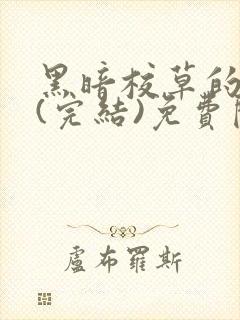 黑暗校草的
(完結)免費
盧布羅斯